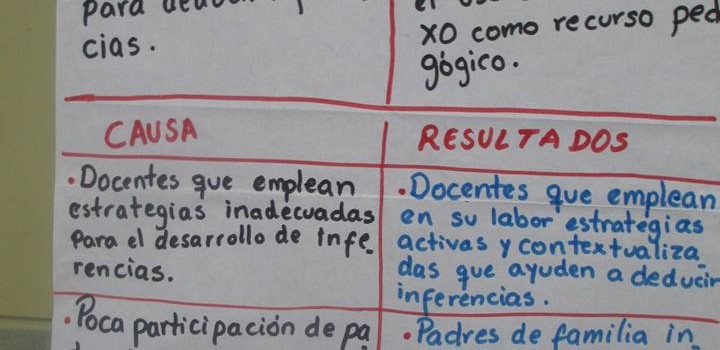 para
cias.
el
XO como recurso ped
gógico.
CAUSA
RESULTADOS
·Docentes que emplean
estrategias inadecuadas
para el desarrollo de infe-
rencias.
·Docentes que emplean
en su labor estrategias
activas y contextualiza-
das que ayuden a deducir
inferencias.
·Poca participación de pa
·Padres de familia in-